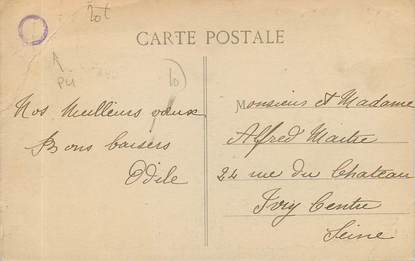 CARTE POSTALE
Nos Meilleurs vœux
Bons baisers
Odile
Monsieur et Madame
Alfred Maitre
24 rue du Chateau
Ivry Centre
Seine